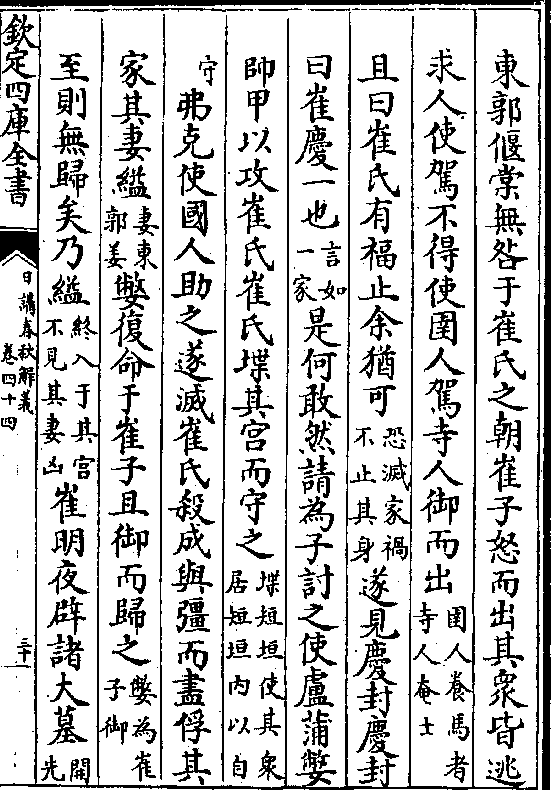 東郭偃棠無咎于崔氏之朝崔子怒而出其衆皆逃
求人使駕不得使圉人駕寺人御而出圉人養馬者寺人奄士
且曰崔氏有福止余猶可恐滅家禍不止其身遂見慶封慶封
曰崔慶一也言如一家是何敢然請為子討之使盧蒲嫳
帥甲以攻崔氏崔氏堞其宫而守之堞短垣使其衆居短垣内以自
守弗克使國人助之遂滅崔氏殺成與彊而盡俘其
家其妻縊妻東郭姜嫳復命于崔子且御而歸之嫳為崔子御
至則無歸矣乃縊終入于其宫不見其妻凶崔明夜辟諸大墓開先
欽定四庫全書
日講春秋解義
卷四十四
三十一